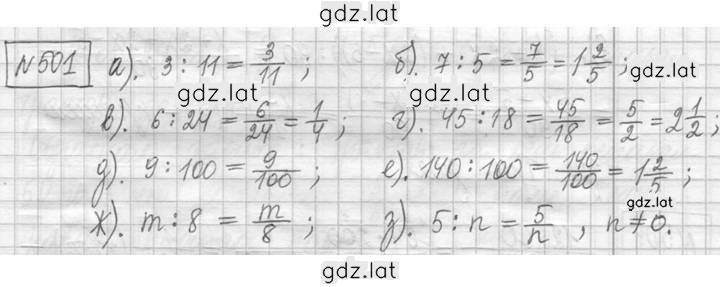 gdz.lat
№501 а). 3 : 11 = 3/11 ; б). 7 : 5 = 7/5 = 1 2/5 ;
gdz.lat gdz.lat
в). 6 : 24 = 6/24 = 1/4 ; г). 45 : 18 = 45/18 = 5/2 = 2 1/2 ;
д). 9 : 100 = 9/100 ; е). 140 : 100 = 140/100 = 1 2/5 ;
gdz.lat
ж). m : 8 = m/8 ; з). 5 : n = 5/n , n ≠ 0.
gdz.lat